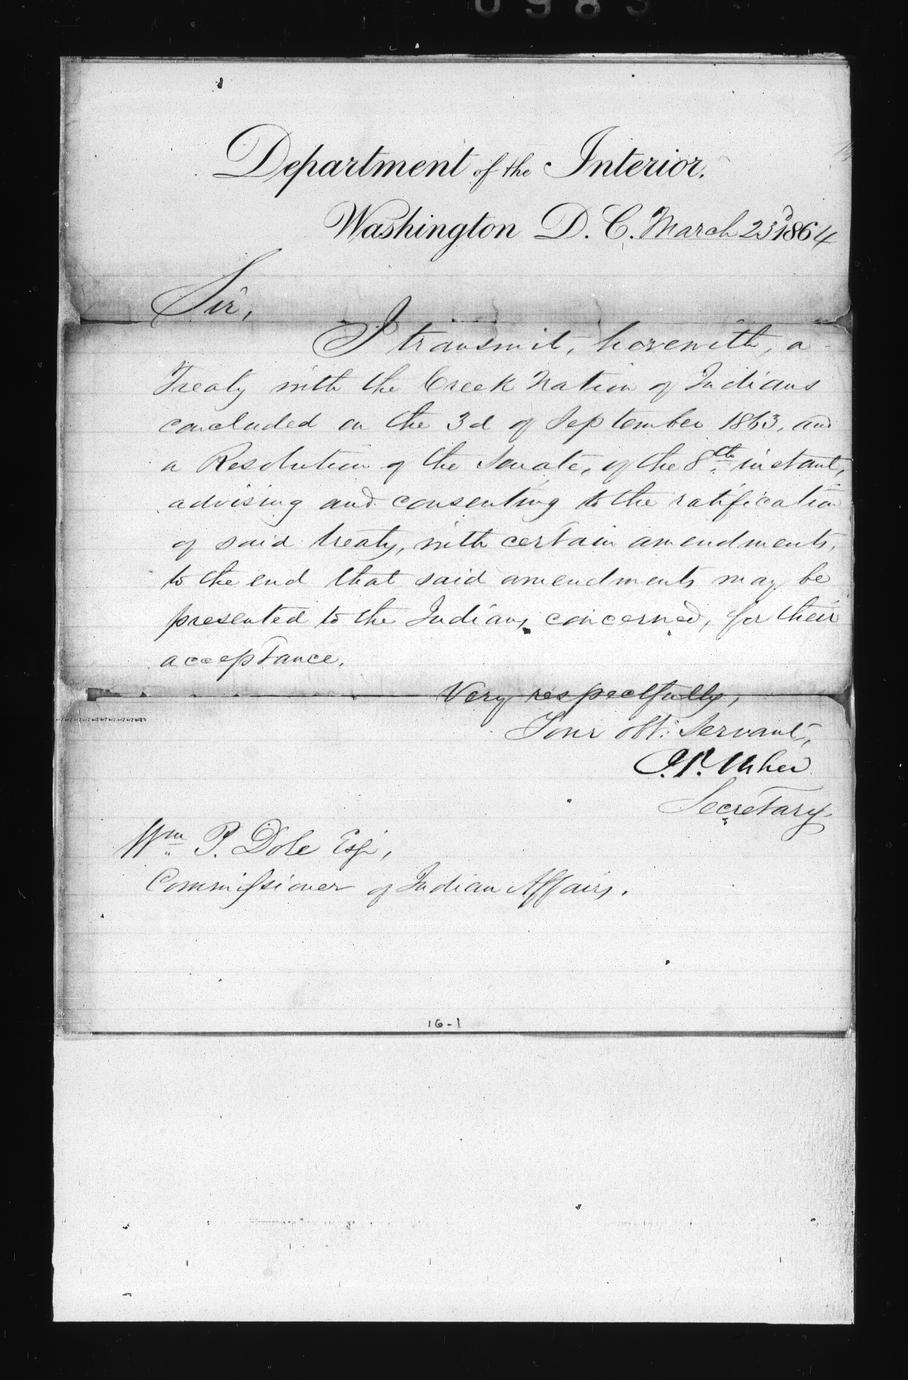 0983
Department of the Interior,
Washington D. C. March 23d 1864
Sir,
I transmit, herewith, a
Treaty with the Creek Nation of Indians
concluded on the 3d of September 1863, and
a Resolution of the Senate, of the 8th instant,
advising and consenting to the ratification
of said treaty, with certain amendments,
to the end that said amendments may be
presented to the Indians concerned, for their
acceptance.
Very respectfully,
Your obt. Servant,
J. P. Usher
Secretary.
Wm P. Dole Esqr,
Commissioner of Indian Affairs.
16-1